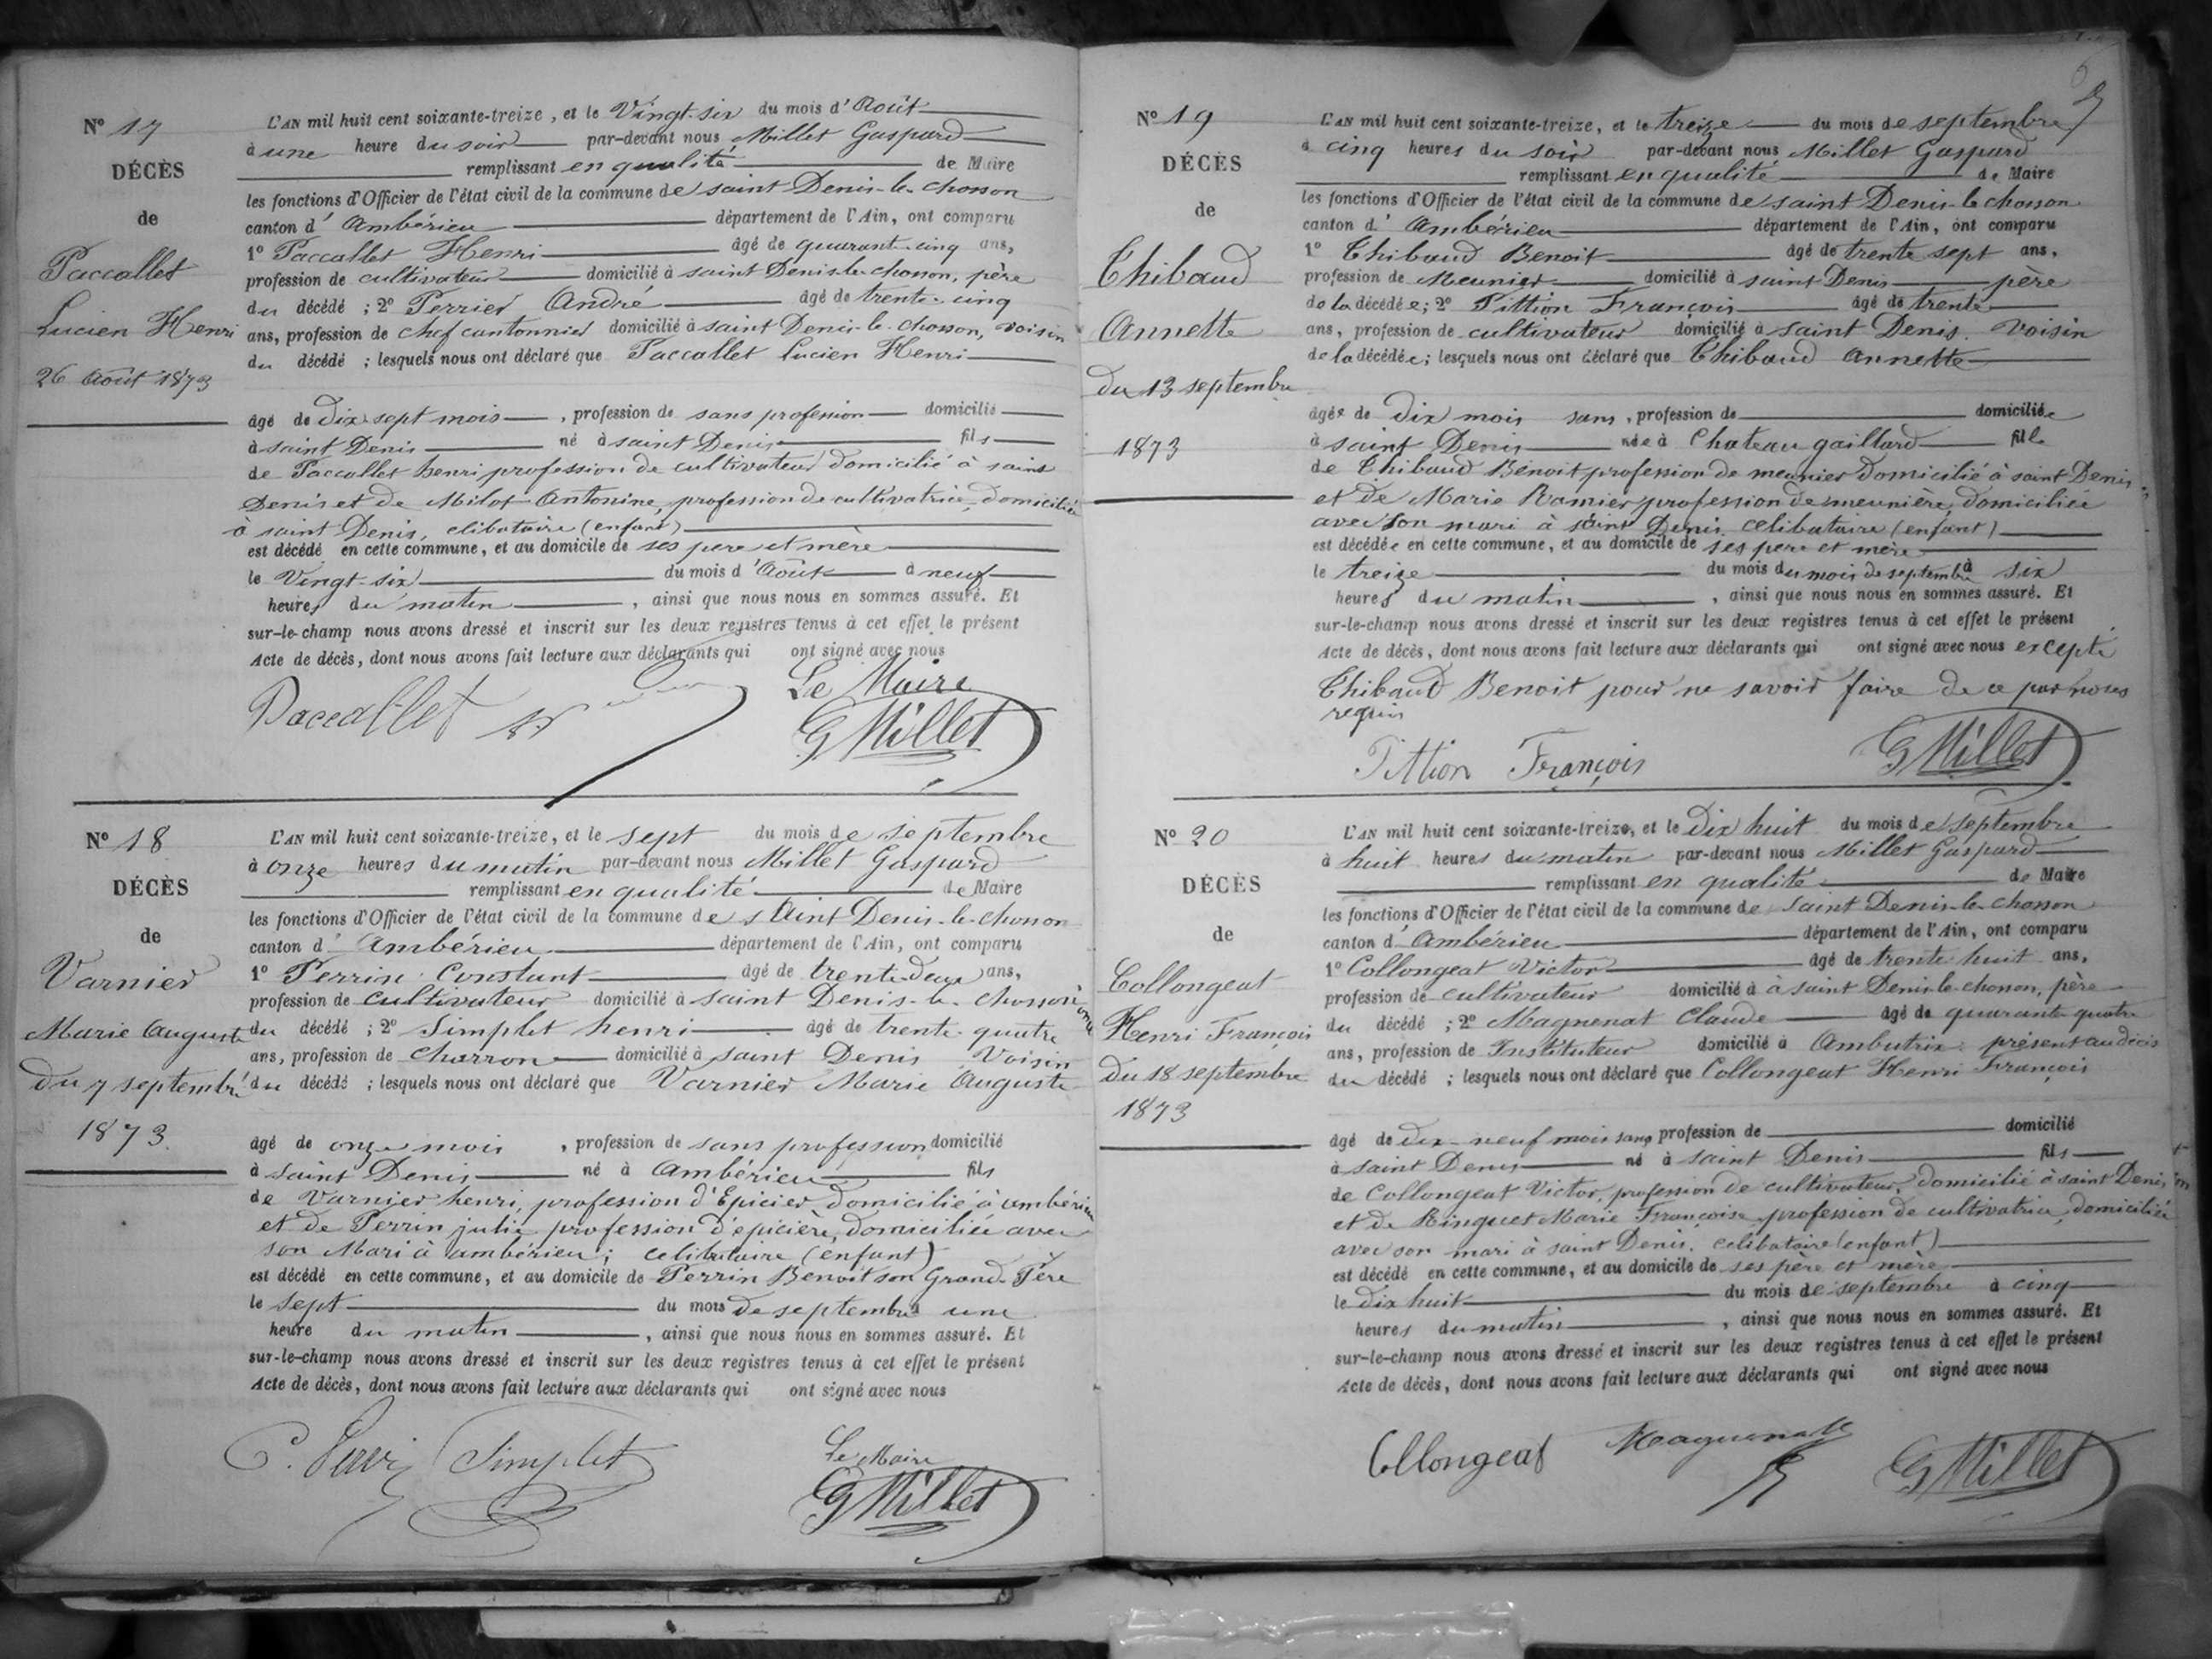 N° 17
DÉCÈS
de
Paccallet
Lucien Henri
26 Août 1873
L'AN mil huit cent soixante-treize, et le Vingt-six du mois d'Août
à une heure du soir par-devant nous Millet Gaspard
remplissant en qualité de Maire
les fonctions d'Officier de l'état civil de la commune de saint Denis-le-chosson
canton d'Ambérieu département de l'Ain, ont comparu
1° Paccallet Henri âgé de quarant-cinq ans,
profession de cultivateur domicilié à saint Denis-le-chosson, père
du décédé ; 2° Perrier André âgé de trente-cinq
ans, profession de chef cantonnier domicilié à saint Denis-le-chosson, voisin
du décédé ; lesquels nous ont déclaré que Paccallet Lucien Henri
âgé de Dix sept mois, profession de sans profession domicilié
à saint Denis né à saint Denis fils
de Paccallet henri profession de cultivateur domicilié à saint
Denis et de Milot Antonine, profession de cultivatrice, domiciliée
à saint Denis, célibataire (enfant)
est décédé en cette commune, et au domicile de ses père et mère
le Vingt-six du mois d'Août à neuf
heures du matin, ainsi que nous nous en sommes assuré. Et
sur-le-champ nous avons dressé et inscrit sur les deux registres tenus à cet effet le présent
Acte de décès, dont nous avons fait lecture aux déclarants qui ont signé avec nous
Paccallet
Le Maire
G Millet
N° 18
DÉCÈS
de
Varnier
Marie Auguste
Du 7 septembre
1873
L'AN mil huit cent soixante-treize, et le sept du mois de septembre
à onze heures du matin par-devant nous Millet Gaspard
remplissant en qualité de Maire
les fonctions d'Officier de l'état civil de la commune de saint Denis-le-chosson
canton d'Ambérieu département de l'Ain, ont comparu
1° Perrin Constant âgé de trente-deux ans,
profession de cultivateur domicilié à saint Denis-le-chosson oncle
du décédé ; 2° Simplet henri âgé de trente-quatre
ans, profession de Charron domicilié à saint Denis Voisin
du décédé ; lesquels nous ont déclaré que Varnier Marie Auguste
âgé de onze mois, profession de sans profession domicilié
à saint Denis né à Ambérieu fils
de Varnier henri, profession d'Epicier domicilié à ambérieu
et de Perrin julie profession d'epicière, domiciliée avec
son Mari à ambérieu ; célibataire (enfant)
est décédé en cette commune, et au domicile de Perrin Benoit son Grand-Père
le sept du mois de septembre à une
heure du matin, ainsi que nous nous en sommes assuré. Et
sur-le-champ nous avons dressé et inscrit sur les deux registres tenus à cet effet le présent
Acte de décès, dont nous avons fait lecture aux déclarants qui ont signé avec nous
C. Perrin Simplet
Le Maire
G Millet
N° 19
DÉCÈS
de
Thibaud
Annette
du 13 septembre
1873
L'AN mil huit cent soixante-treize, et le treize du mois de septembre
à cinq heures du soir par-devant nous Millet Gaspard
remplissant en qualité de Maire
les fonctions d'Officier de l'état civil de la commune de saint Denis-le-chosson
canton d'Ambérieu département de l'Ain, ont comparu
1° Thibaud Benoit âgé de trente sept ans,
profession de Meunier domicilié à saint Denis père
de la décédée ; 2° Pittion François âgé de trente
ans, profession de cultivateur domicilié à saint Denis. Voisin
de la décédée ; lesquels nous ont déclaré que Thibaud Annette
âgée de dix mois sans, profession de domiciliée
à saint Denis née à Chateau gaillard fille
de Thibaud Benoit profession de meunier domicilié à saint Denis
et de Marie Ramier profession de meunière, domiciliée
avec son mari à saint Denis, célibataire (enfant)
est décédée en cette commune, et au domicile de ses père et mère
le treize du mois du mois de septembre à six
heures du matin, ainsi que nous nous en sommes assuré. Et
sur-le-champ nous avons dressé et inscrit sur les deux registres tenus à cet effet le présent
Acte de décès, dont nous avons fait lecture aux déclarants qui ont signé avec nous excepté
Thibaud Benoit pour ne savoir faire de ce par nous
requis
Pittion François
G Millet
N° 20
DÉCÈS
de
Collongeat
Henri François
Du 18 septembre
1873
L'AN mil huit cent soixante-treize, et le Dix huit du mois de septembre
à huit heures du matin par-devant nous Millet Gaspard
remplissant en qualité de Maire
les fonctions d'Officier de l'état civil de la commune de saint Denis-le-chosson
canton d'Ambérieu département de l'Ain, ont comparu
1° Collongeat Victor âgé de trente-huit ans,
profession de cultivateur domicilié à à saint Denis-le-chosson, père
du décédé ; 2° Magnenat Claude âgé de quarante-quatre
ans, profession de Instituteur domicilié à Ambutrix présent au décès
du décédé ; lesquels nous ont déclaré que Collongeat Henri François
âgé de dix-neuf mois sans profession de domicilié
à saint Denis né à saint Denis fils
de Collongeat Victor, profession de cultivateur, domicilié à saint Denis
et de Ringuet Marie Françoise profession de cultivatrice, domiciliée
avec son mari à saint Denis. célibataire (enfant)
est décédé en cette commune, et au domicile de ses père et mère
le dix huit du mois de septembre à cinq
heures du matin, ainsi que nous nous en sommes assuré. Et
sur-le-champ nous avons dressé et inscrit sur les deux registres tenus à cet effet le présent
Acte de décès, dont nous avons fait lecture aux déclarants qui ont signé avec nous
Collongeat Magnenat
G Millet